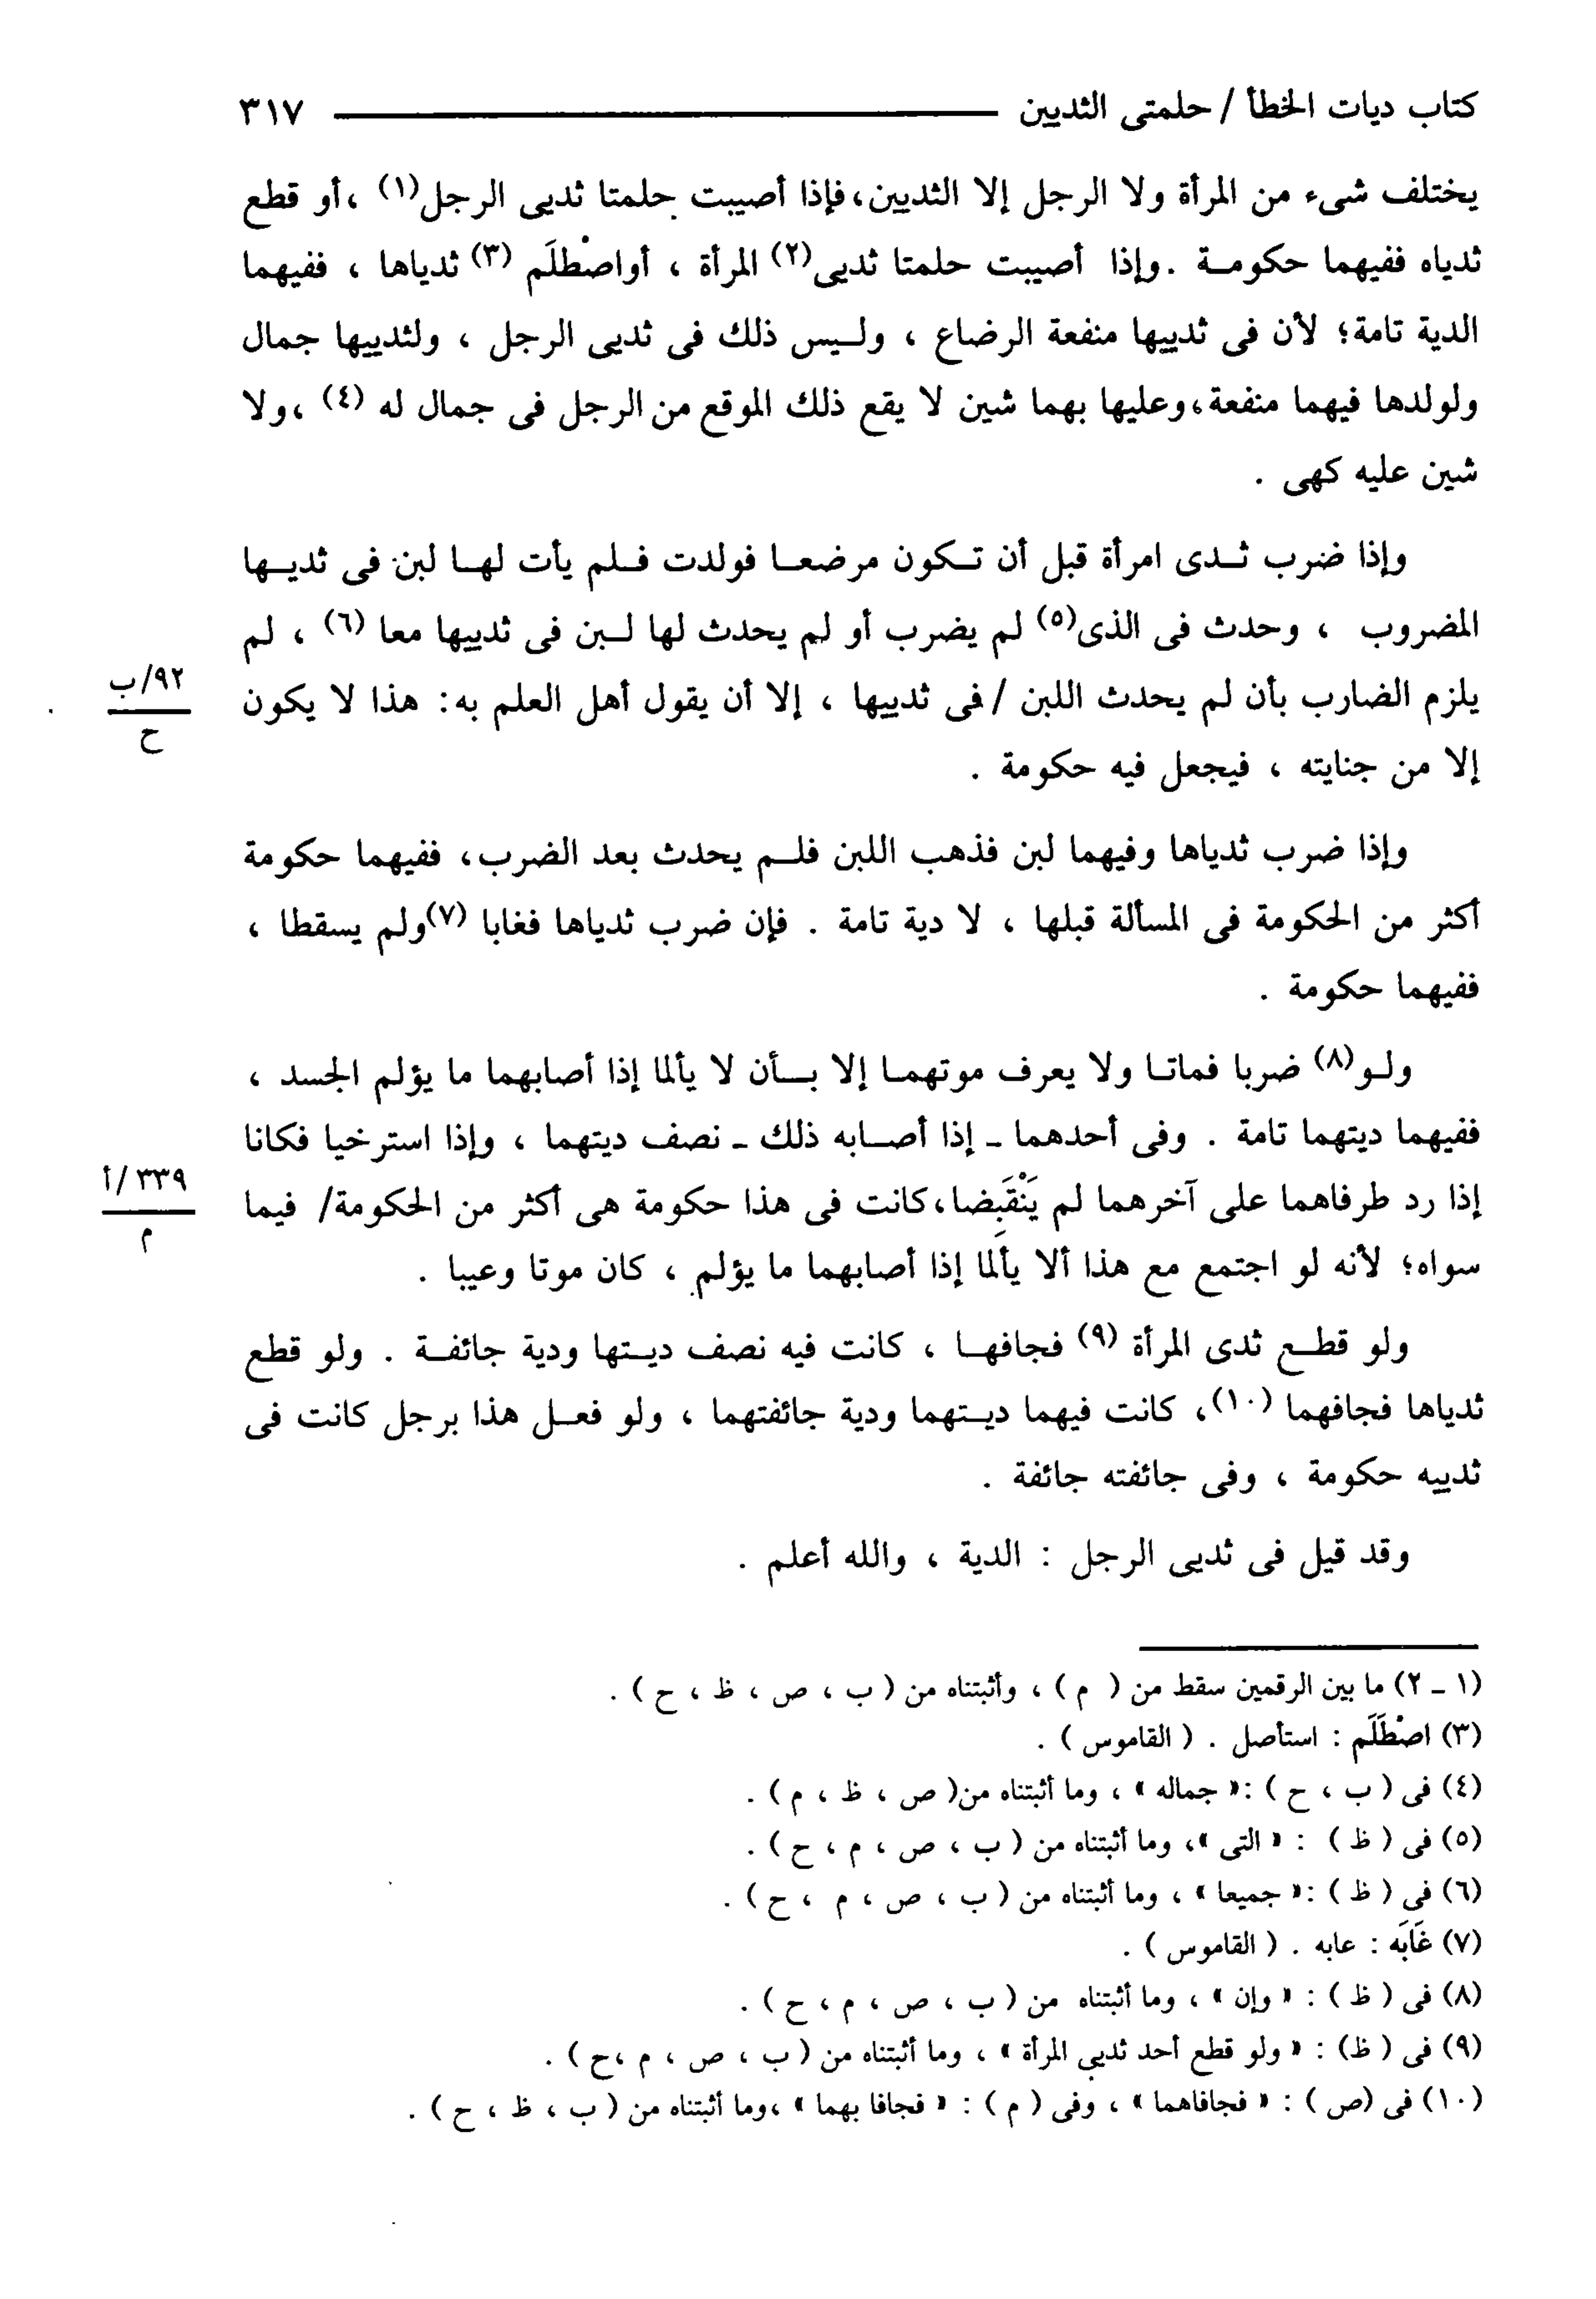 كتاب ديات الخطأ / حلمتى الثديين ٣١٧
يختلف شىء من المرأة ولا الرجل إلا الثديين، فإذا أصيبت حلمتا ثديى الرجل(١) ، أو قطع
ثدياه ففيهما حكومـة . وإذا أصيبت حلمتا ثديى(٢) المرأة ، أواصْطلَم (٣) ثدياها ، ففيهما
الدية تامة؛ لأن فى ثدييها منفعة الرضاع ، ولـيس ذلك فى ثديى الرجل ، ولثدييها جمال
ولولدها فيهما منفعة، وعليها بهما شين لا يقع ذلك الموقع من الرجل فى جمال له (٤) ، ولا
شين عليه كهى .
وإذا ضرب ثـدى امرأة قبل أن تـكون مرضعـا فولدت فـلم يأت لهـا لبن فى ثديـها
المضروب ، وحدث فى الذى(٥) لم يضرب أو لم يحدث لها لـبن فى ثدييها معا (٦) ، لم
يلزم الضارب بأن لم يحدث اللبن / فى ثدييها ، إلا أن يقول أهل العلم به : هذا لا يكون
٩٢/ب
ح
إلا من جنايته ، فيجعل فيه حكومة .
وإذا ضرب ثدياها وفيهما لبن فذهب اللبن فلـم يحدث بعد الضرب، ففيهما حكومة
أكثر من الحكومة فى المسألة قبلها ، لا دية تامة . فإن ضرب ثدياها فغابا (٧) ولم يسقطا ،
ففيهما حكومة .
ولـو(٨) ضربا فماتـا ولا يعرف موتهمـا إلا بـأن لا يألما إذا أصابهما ما يؤلم الجسد ،
ففيهما ديتهما تامة . وفى أحدهما ـ إذا أصـابه ذلك ـ نصف ديتهما ، وإذا استرخيا فكانا
إذا رد طرفاهما على آخرهما لم يَنْقَبِضا، كانت فى هذا حكومة هى أكثر من الحكومة/ فيما
٣٣٩/أ
م
سواه؛ لأنه لو اجتمع مع هذا ألا يألما إذا أصابهما ما يؤلم ، كان موتا وعيبا .
ولو قطـع ثدى المرأة (٩) فجافهـا ، كانت فيه نصف ديـتها ودية جائفـة . ولو قطع
ثدياها فجافهما (١٠)، كانت فيهما ديـتهما ودية جائفتهما ، ولو فعـل هذا برجل كانت فى
ثدييه حكومة ، وفى جائفته جائفة .
وقد قيل فى ثديى الرجل : الدية ، والله أعلم .
(١ ـ ٢) ما بين الرقمين سقط من ( م ) ، وأثبتناه من ( ب ، ص ، ظ ، ح ) .
(٣) اصْطَلَم : استأصل . ( القاموس ) .
(٤) فى ( ب ، ح ) : « جماله » ، وما أثبتناه من( ص ، ظ ، م ) .
(٥) فى ( ظ ) : « التى »، وما أثبتناه من ( ب ، ص ، م ، ح ) .
(٦) فى ( ظ ) : « جميعا » ، وما أثبتناه من ( ب ، ص ، م ، ح ) .
(٧) غَابَه : عابه . ( القاموس ) .
(٨) فى ( ظ ) : « وإن » ، وما أثبتناه من ( ب ، ص ، م ، ح ) .
(٩) فى ( ظ) : « ولو قطع أحد ثديي المرأة » ، وما أثبتناه من ( ب ، ص ، م ،ح ) .
(١٠) فى (ص ) : « فجافاهما » ، وفى ( م ) : « فجافا بهما » ،وما أثبتناه من ( ب ، ظ ، ح ) .